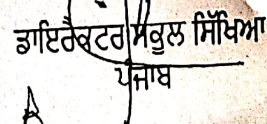 ਡਾਇਰੈਕਟਰ ਸਕੂਲ ਸਿੱਖਿਆ
ਪੰਜਾਬ